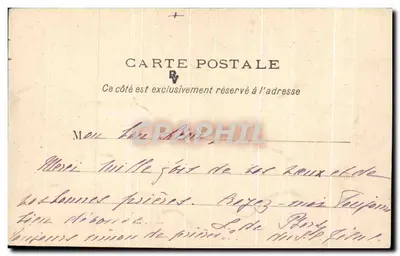 CARTE POSTALE
RV
Ce côté est exclusivement réservé à l'adresse
Mon bon
CPAPHIL
Merci mille fois de vos vœux et de
vos bonnes prières. Croyez-moi toujours
bien dévouée. S. de
toujours union de prières